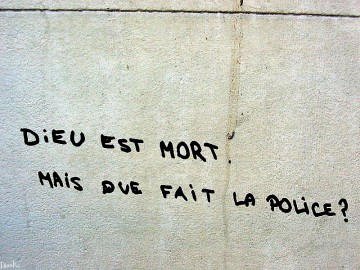 DiEU EST MORT.
MAiS QUE FAiT LA POLiCE?